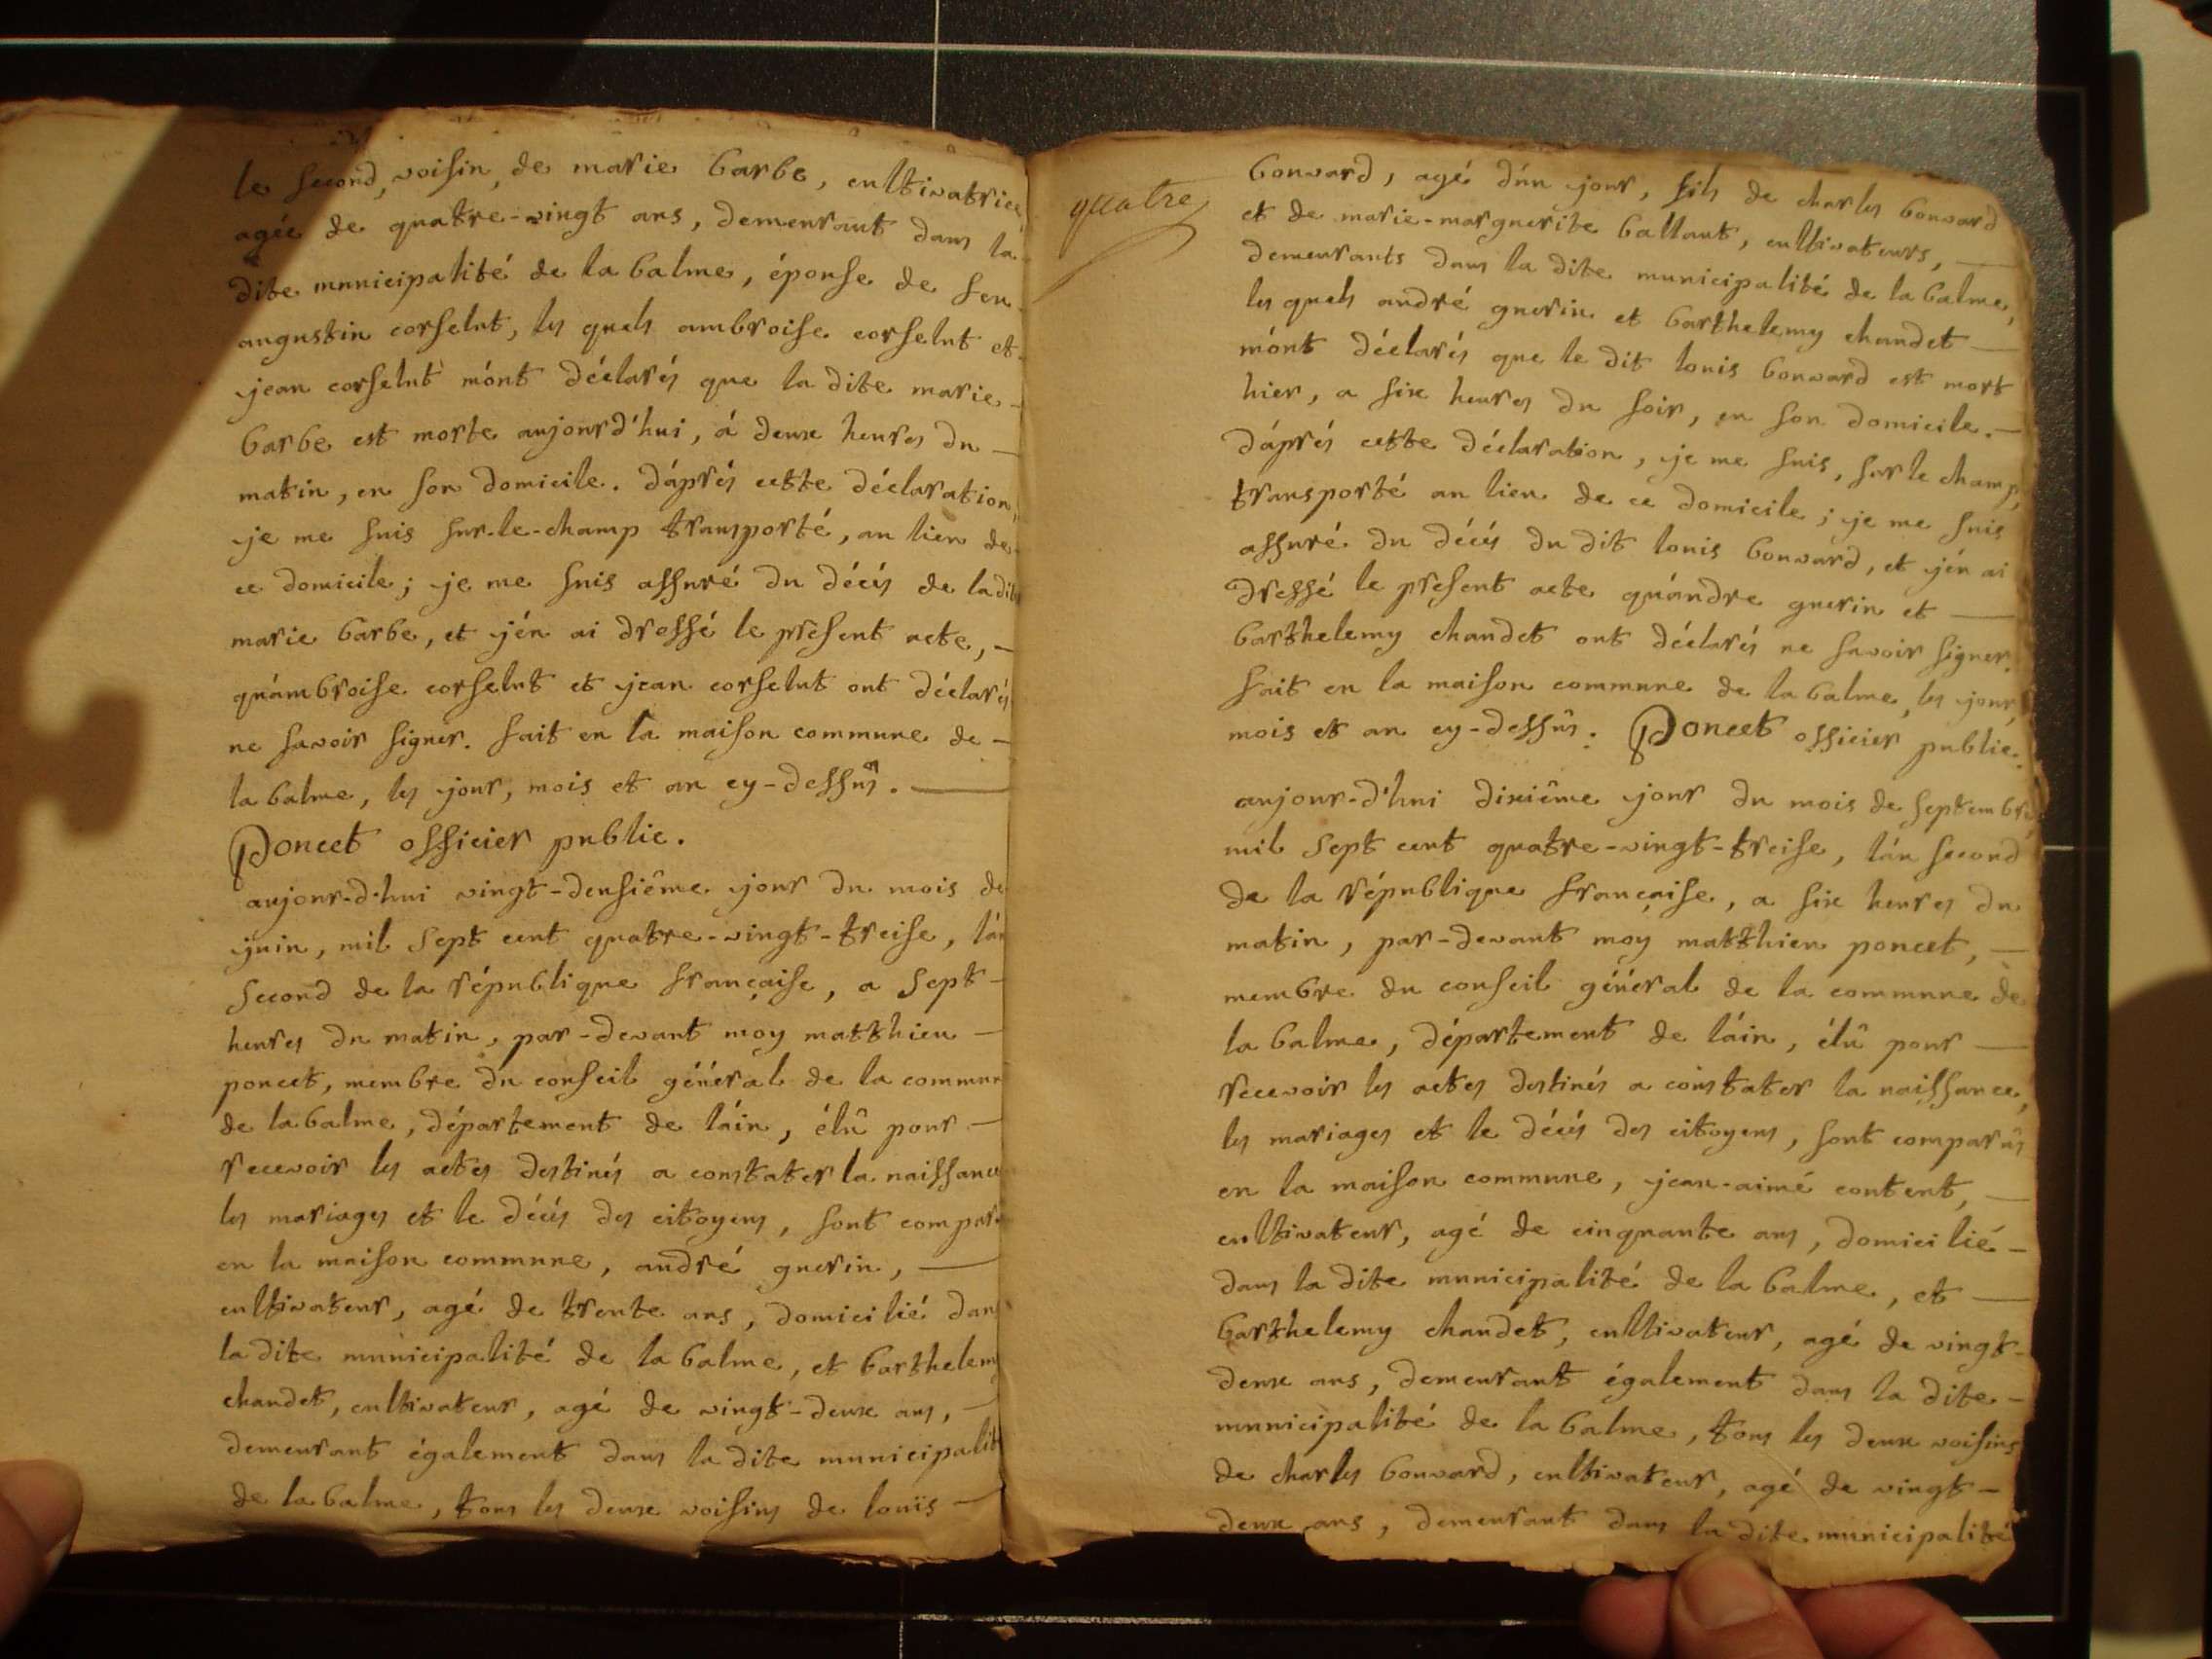 le second, voisin, de marie barbe, cultivatrice
agée de quatre-vingt ans, demeurant dans la
dite municipalité de la balme, épouse de feu
augustin corselut, les quels ambroise corselut et
jean corselut m'ont déclarés que la dite marie
barbe est morte aujourd'hui, á deux heures du
matin, en son domicile. d'áprés cette déclaration,
je me suis sur-le-champ transporté, au lieu de
ce domicile; je me suis assuré du décés de la dite
marie barbe, et j'én ai dressé le present acte,
qu'ambroise corselut et jean corselut ont déclarés
ne savoir signer. fait en la maison commune de
la balme, les jour, mois et an cy-dessus.
Poncet officier public.
aujour-d'hui vingt-deusiême jour du mois de
juin, mil sept cent quatre-vingt-treise, l'án
second de la république française, a sept
heures du matin, par-devant moy matthieu
poncet, membre du conseil général de la commune
de la balme, département de l'áin, élû pour
recevoir les actes destinés a constater la naissance
les mariages et le décés des citoyens, sont comparus
en la maison commune, andré guerin,
cultivateur, agé de trente ans, domicilié dans
la dite municipalité de la balme, et barthelemy
chandet, cultivateur, agé de vingt-deux ans,
demeurant également dans la dite municipalité
de la balme, tous les deux voisins de louis
quatre
bonvard, agé d'ún jour, fils de charles bonvard
et de marie-marguerite ballant, cultivateurs,
demeurants dans la dite municipalité de la balme,
les quels andré guerin et barthelemy chandet
m'ont déclarés que le dit louis bonvard est mort
hier, a six heures du soir, en son domicile.
d'áprés cette déclaration, je me suis, sur le champ,
transporté au lieu de ce domicile; je me suis
assuré du décés du dit louis bonvard, et j'én ai
dressé le present acte qu'ándre guerin et
barthelemy chandet ont déclarés ne savoir signer.
fait en la maison commune de la balme, les jour,
mois et an cy-dessûs. Poncet officier public.
aujour-d'hui dixiême jour du mois de septembre
mil sept cent quatre-vingt-treise, l'án second
de la république française, a six heures du
matin, par-devant moy matthieu poncet,
membre du conseil général de la commune de
la balme, département de l'áin, élû pour
recevoir les actes destinés a constater la naissance,
les mariages et le décés des citoyens, sont comparûs
en la maison commune, jean-aimé content,
cultivateur, agé de cinquante ans, domicilié
dans la dite municipalité de la balme, et
barthelemy chandet, cultivateur, agé de vingt-
deux ans, demeurant également dans la dite
municipalité de la balme, tous les deux voisins
de charles bonvard, cultivateur, agé de vingt-
deux ans, demeurant dans la dite municipalité